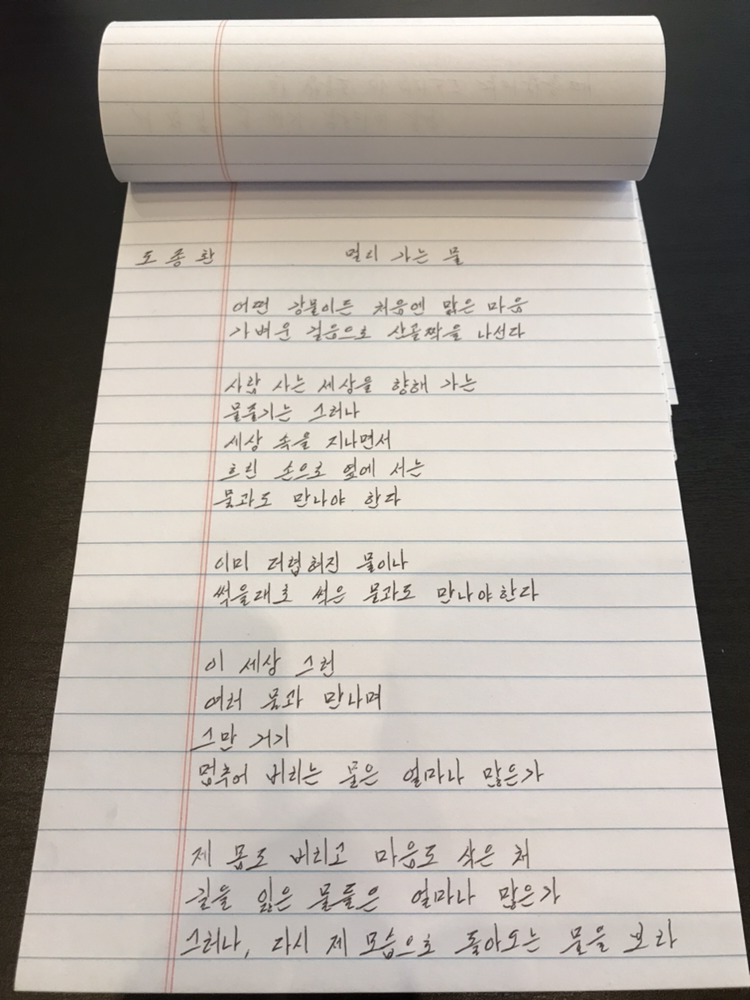 도종환 멀리 가는 물
어떤 강물이든 처음엔 맑은 마음
가벼운 걸음으로 산골짝을 나선다
사람 사는 세상을 향해 가는
물줄기는 그러나
세상 속을 지나면서
흐린 손으로 옆에 서는
물과도 만나야 한다
이미 더럽혀진 물이나
썩을대로 썩은 물과도 만나야한다
이 세상 그런
여러 물과 만나며
그만 거기
멈추어 버리는 물은 얼마나 많은가
제 몸도 버리고 마음도 삭은 채
길을 잃은 물들은 얼마나 많은가
그러나, 다시 제 모습으로 돌아오는 물을 보라